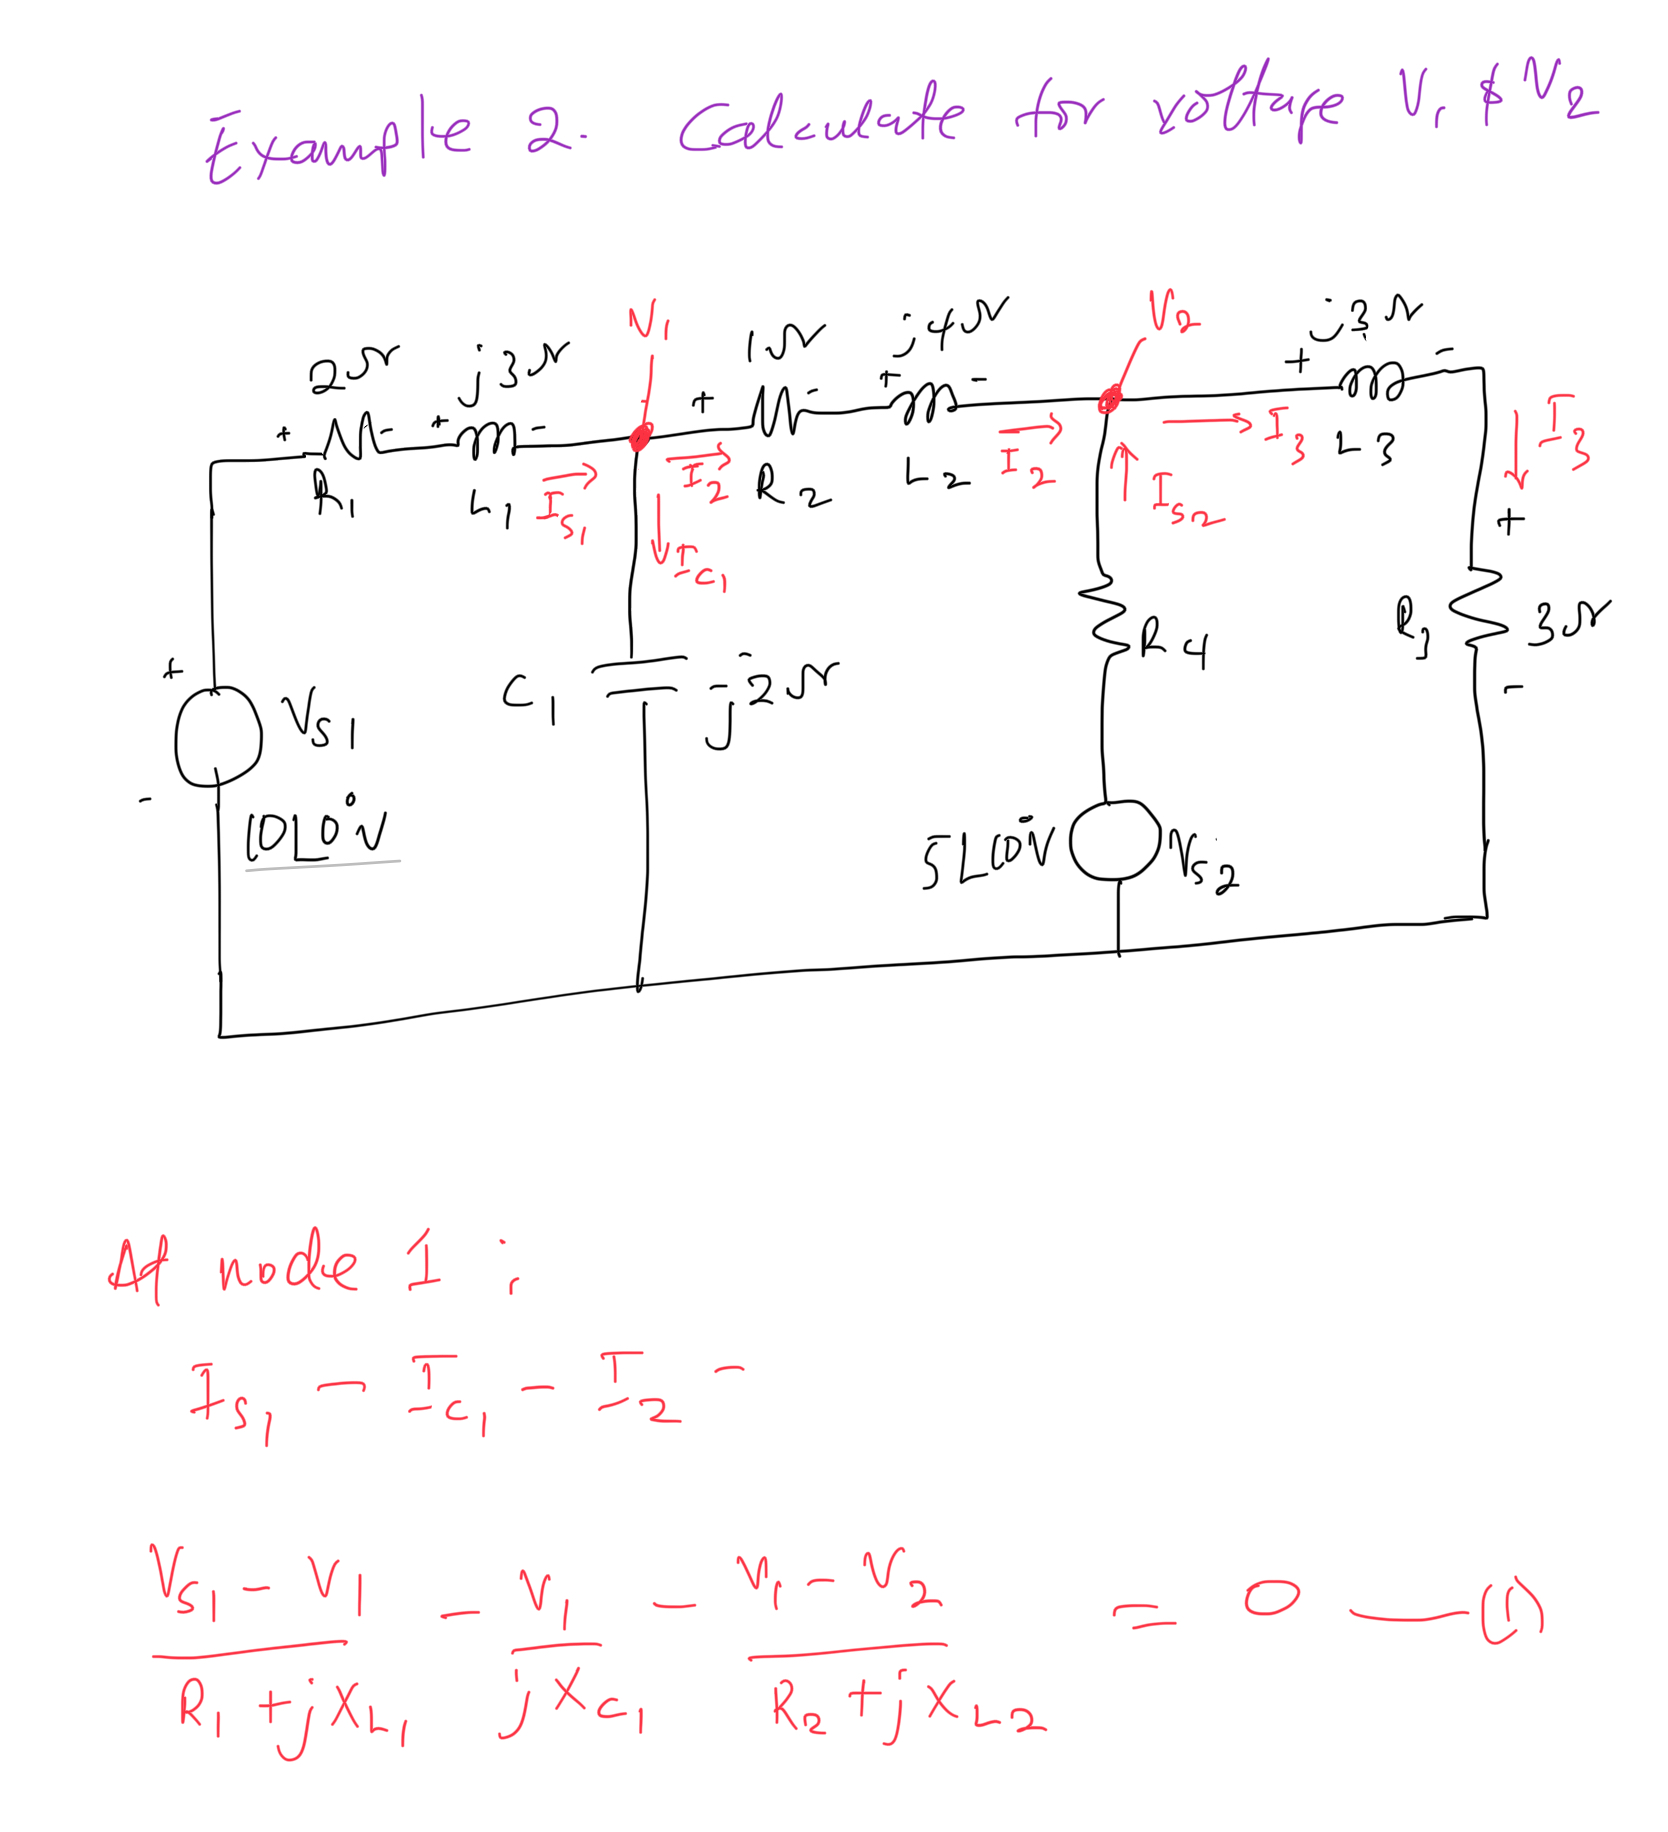 Example 2. Calculate for voltage V1 & V2
V1
V2
2Ω
j3Ω
1Ω
j4Ω
j3Ω
+ - + -
+ - + -
+ -
R1
L1
IS1
I2
R2
L2
I2
I3
L3
I3
IC1
IS2
+
R4
R3
3Ω
-
+
VS1
-
10∠0°V
C1
-j2Ω
5∠10°V
VS2
At node 1 :
IS1 - IC1 - I2 -
(VS1 - V1)/(R1 + jXL1) - V1/(jXC1) - (V1 - V2)/(R2 + jXL2) = 0 —(1)